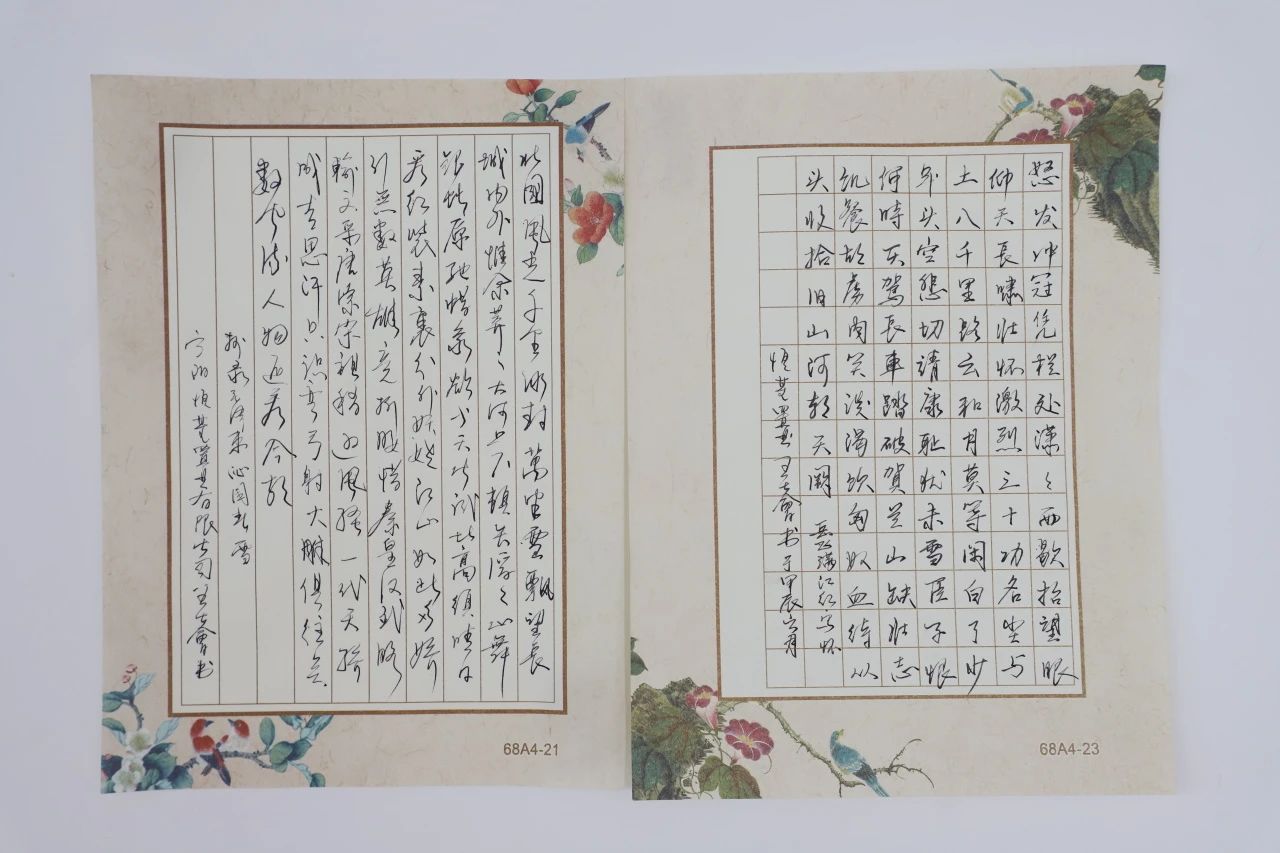 北國風光千里冰封萬里雪飄望長
城内外惟余莽々大河上下頓失滔々山舞
银蛇原驰蜡象欲与天公试比高须晴日
看红装素裹分外妖娆江山如此多娇
引无数英雄竞折腰惜秦皇汉武略
輸文采唐宗宋祖稍逊風骚一代天骄
成吉思汗只识弯弓射大雕俱往矣
數風流人物还看今朝
抄录毛泽东沁园春雪
恒基置业有限公司王士會书
68A4-21
怒发冲冠凭栏处潇々雨歇抬望眼
仰天長嘯壮怀激烈三十功名尘与
土八千里路云和月莫等闲白了少
年头空悲切靖康耻犹未雪臣子恨
何時灭駕長車踏破賀兰山缺壮志
饥餐胡虏肉笑谈渴饮匈奴血待从
头收拾旧山河朝天阙 岳飞满江红写怀
恒基置业王士會书于甲辰六月
68A4-23